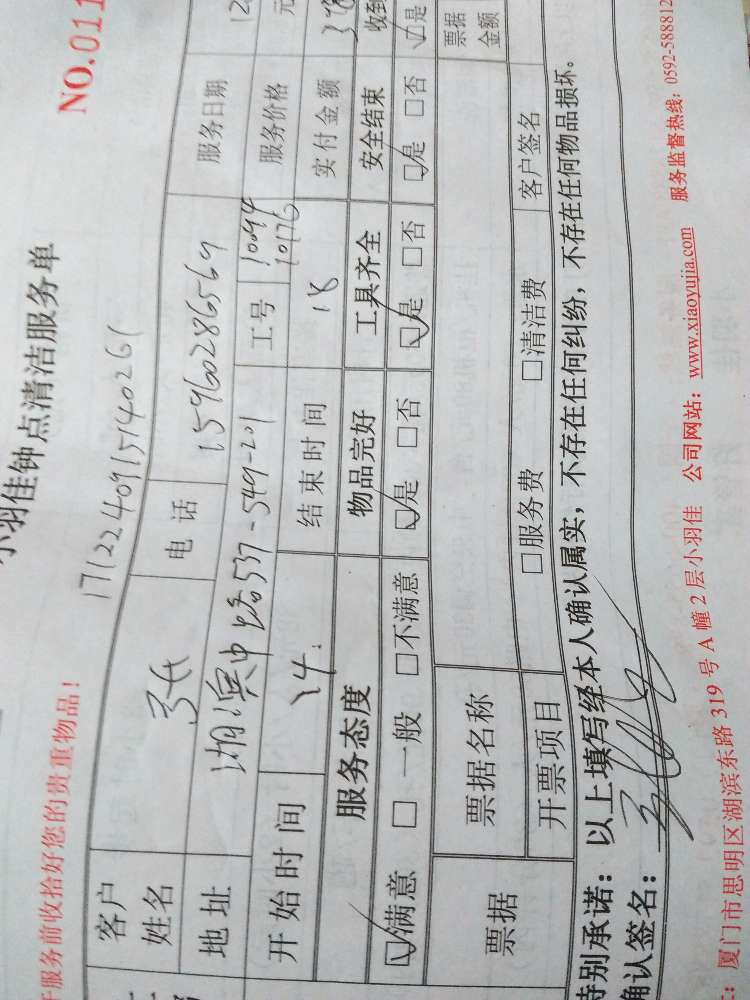 小羽佳钟点清洁服务单
NO.011
服务前收拾好您的贵重物品!
1712240915140261
客户姓名 张 电话 15960286569 服务日期 12
地址 湖滨中路537-549-201 工号 10094 10176 服务价格 元
开始时间 14: 结束时间 18 实付金额
服务态度 物品完好 工具齐全 安全结束 收到
☑满意 □一般 □不满意 ☑是 □否 ☑是 □否 ☑是 □否 ☑是
票据 票据名称 票据金额
开票项目 □服务费 □清洁费 客户签名
特别承诺:以上填写经本人确认属实,不存在任何纠纷,不存在任何物品损坏。
确认签名:
厦门市思明区湖滨东路 319 号 A 幢 2 层小羽佳 公司网站:www.xiaoyujia.com 服务监督热线:0592-5888812